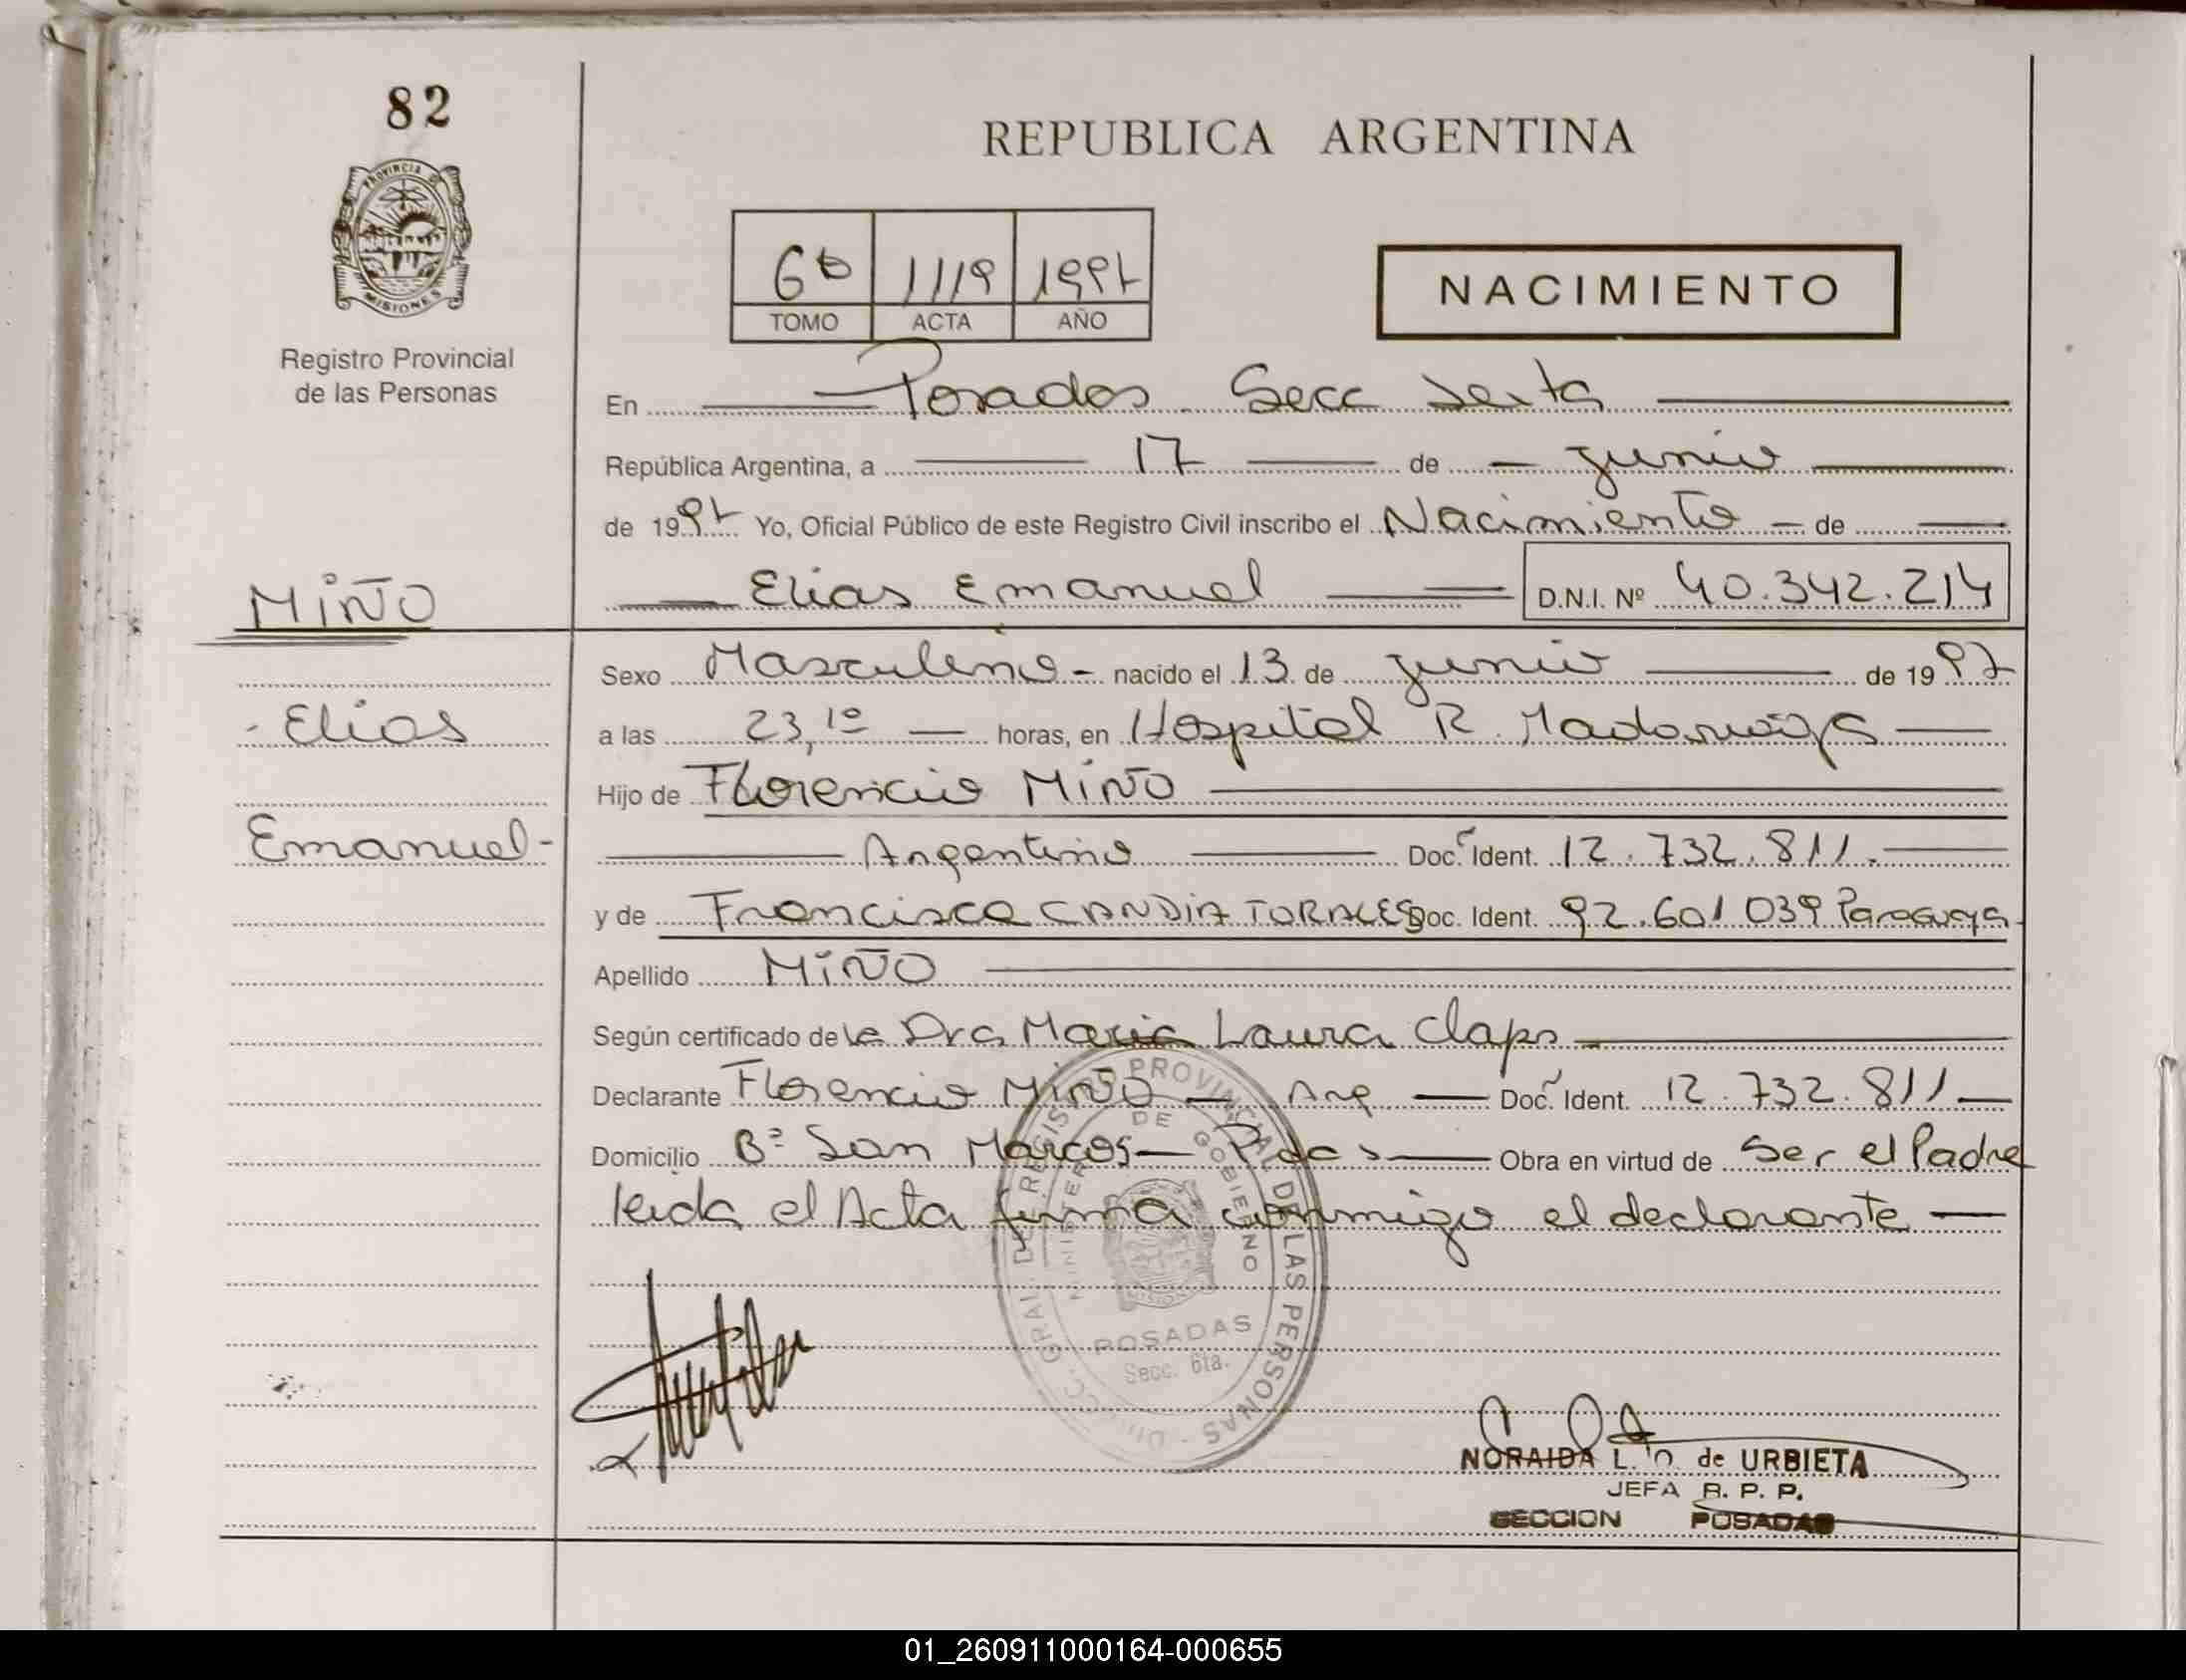 82
REPUBLICA ARGENTINA
PROVINCIA DE
MISIONES
Registro Provincial
de las Personas
6to 1119 1997
TOMO ACTA AÑO
NACIMIENTO
En Posadas Secc Sexta
República Argentina, a 17 de junio
de 1997 Yo, Oficial Público de este Registro Civil inscribo el Nacimiento de
MIÑO
Elias Emanuel D.N.I. Nº 40.342.214
Sexo Masculino - nacido el 13 de junio de 1997
- Elias
a las 23,10 horas, en Hospital R. Madariaga
Hijo de Florencio MIÑO
Emanuel -
Argentino Doc. Ident. 12.732.811.
y de Francisca CANDIA TORALES Doc. Ident. 92.601.039 Paraguaya
Apellido MIÑO
Según certificado de la Dra Maria Laura Claps
Declarante Florencio MIÑO - Arg - Doc. Ident. 12.732.811
Domicilio Bº San Marcos - Pdas - Obra en virtud de Ser el Padre
leida el Acta firma conmigo el declarante
DIRECC. GRAL. DEL REGISTRO PROVINCIAL DE LAS PERSONAS
MINISTERIO DE GOBIERNO
MISIONES
POSADAS
Secc. 6ta.
NORAIDA L. de URBIETA
JEFA R. P. P.
SECCION POSADAS
01_260911000164-000655